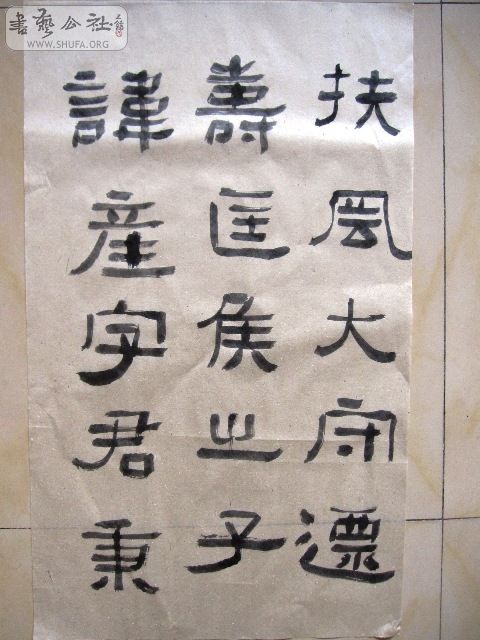 書藝公社
WWW.SHUFA.ORG
扶風大守
壽匡侯之子
諱產字君秉